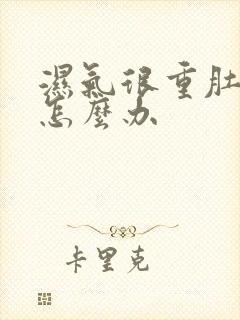 濕氣很重肚
怎麼办
卡里克